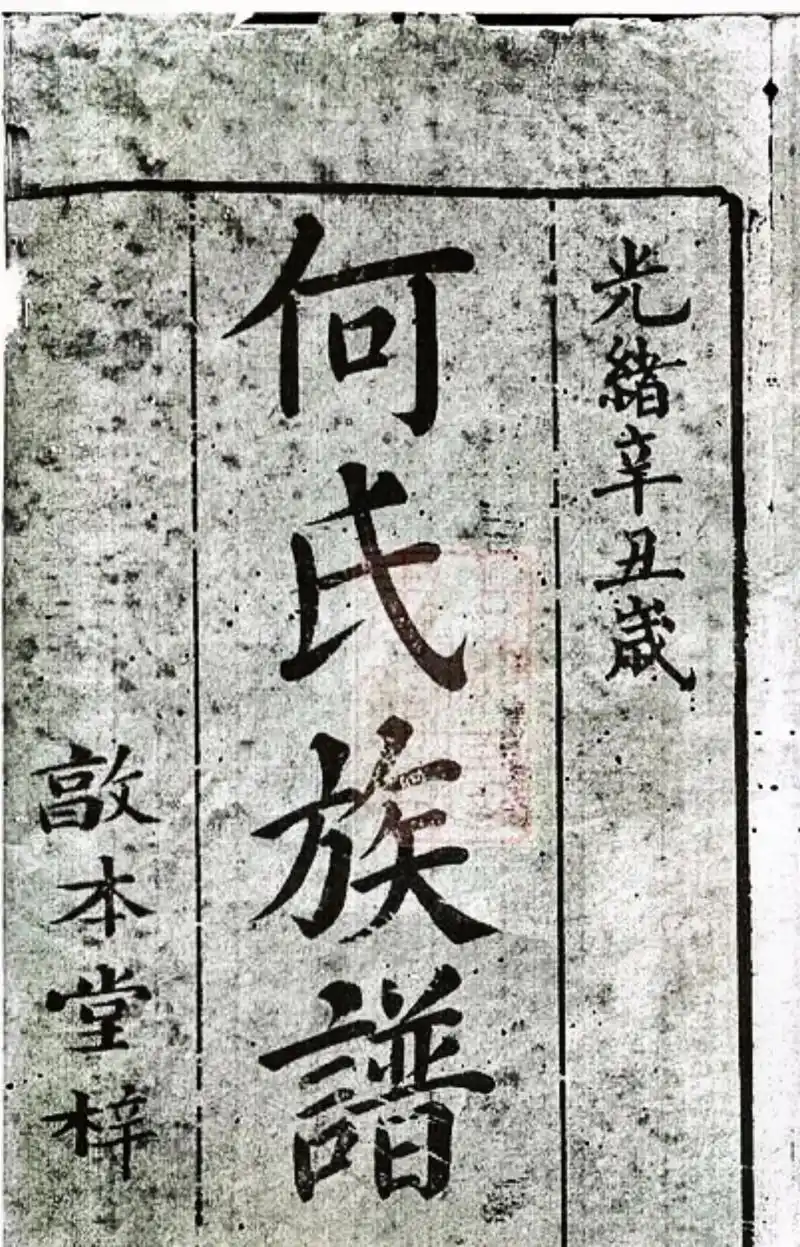 光緒辛丑歲
何氏族譜
敦本堂梓